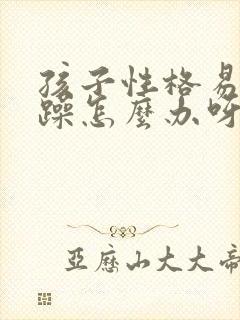 孩子性格易
躁怎麼办呀
亞歷山大大帝